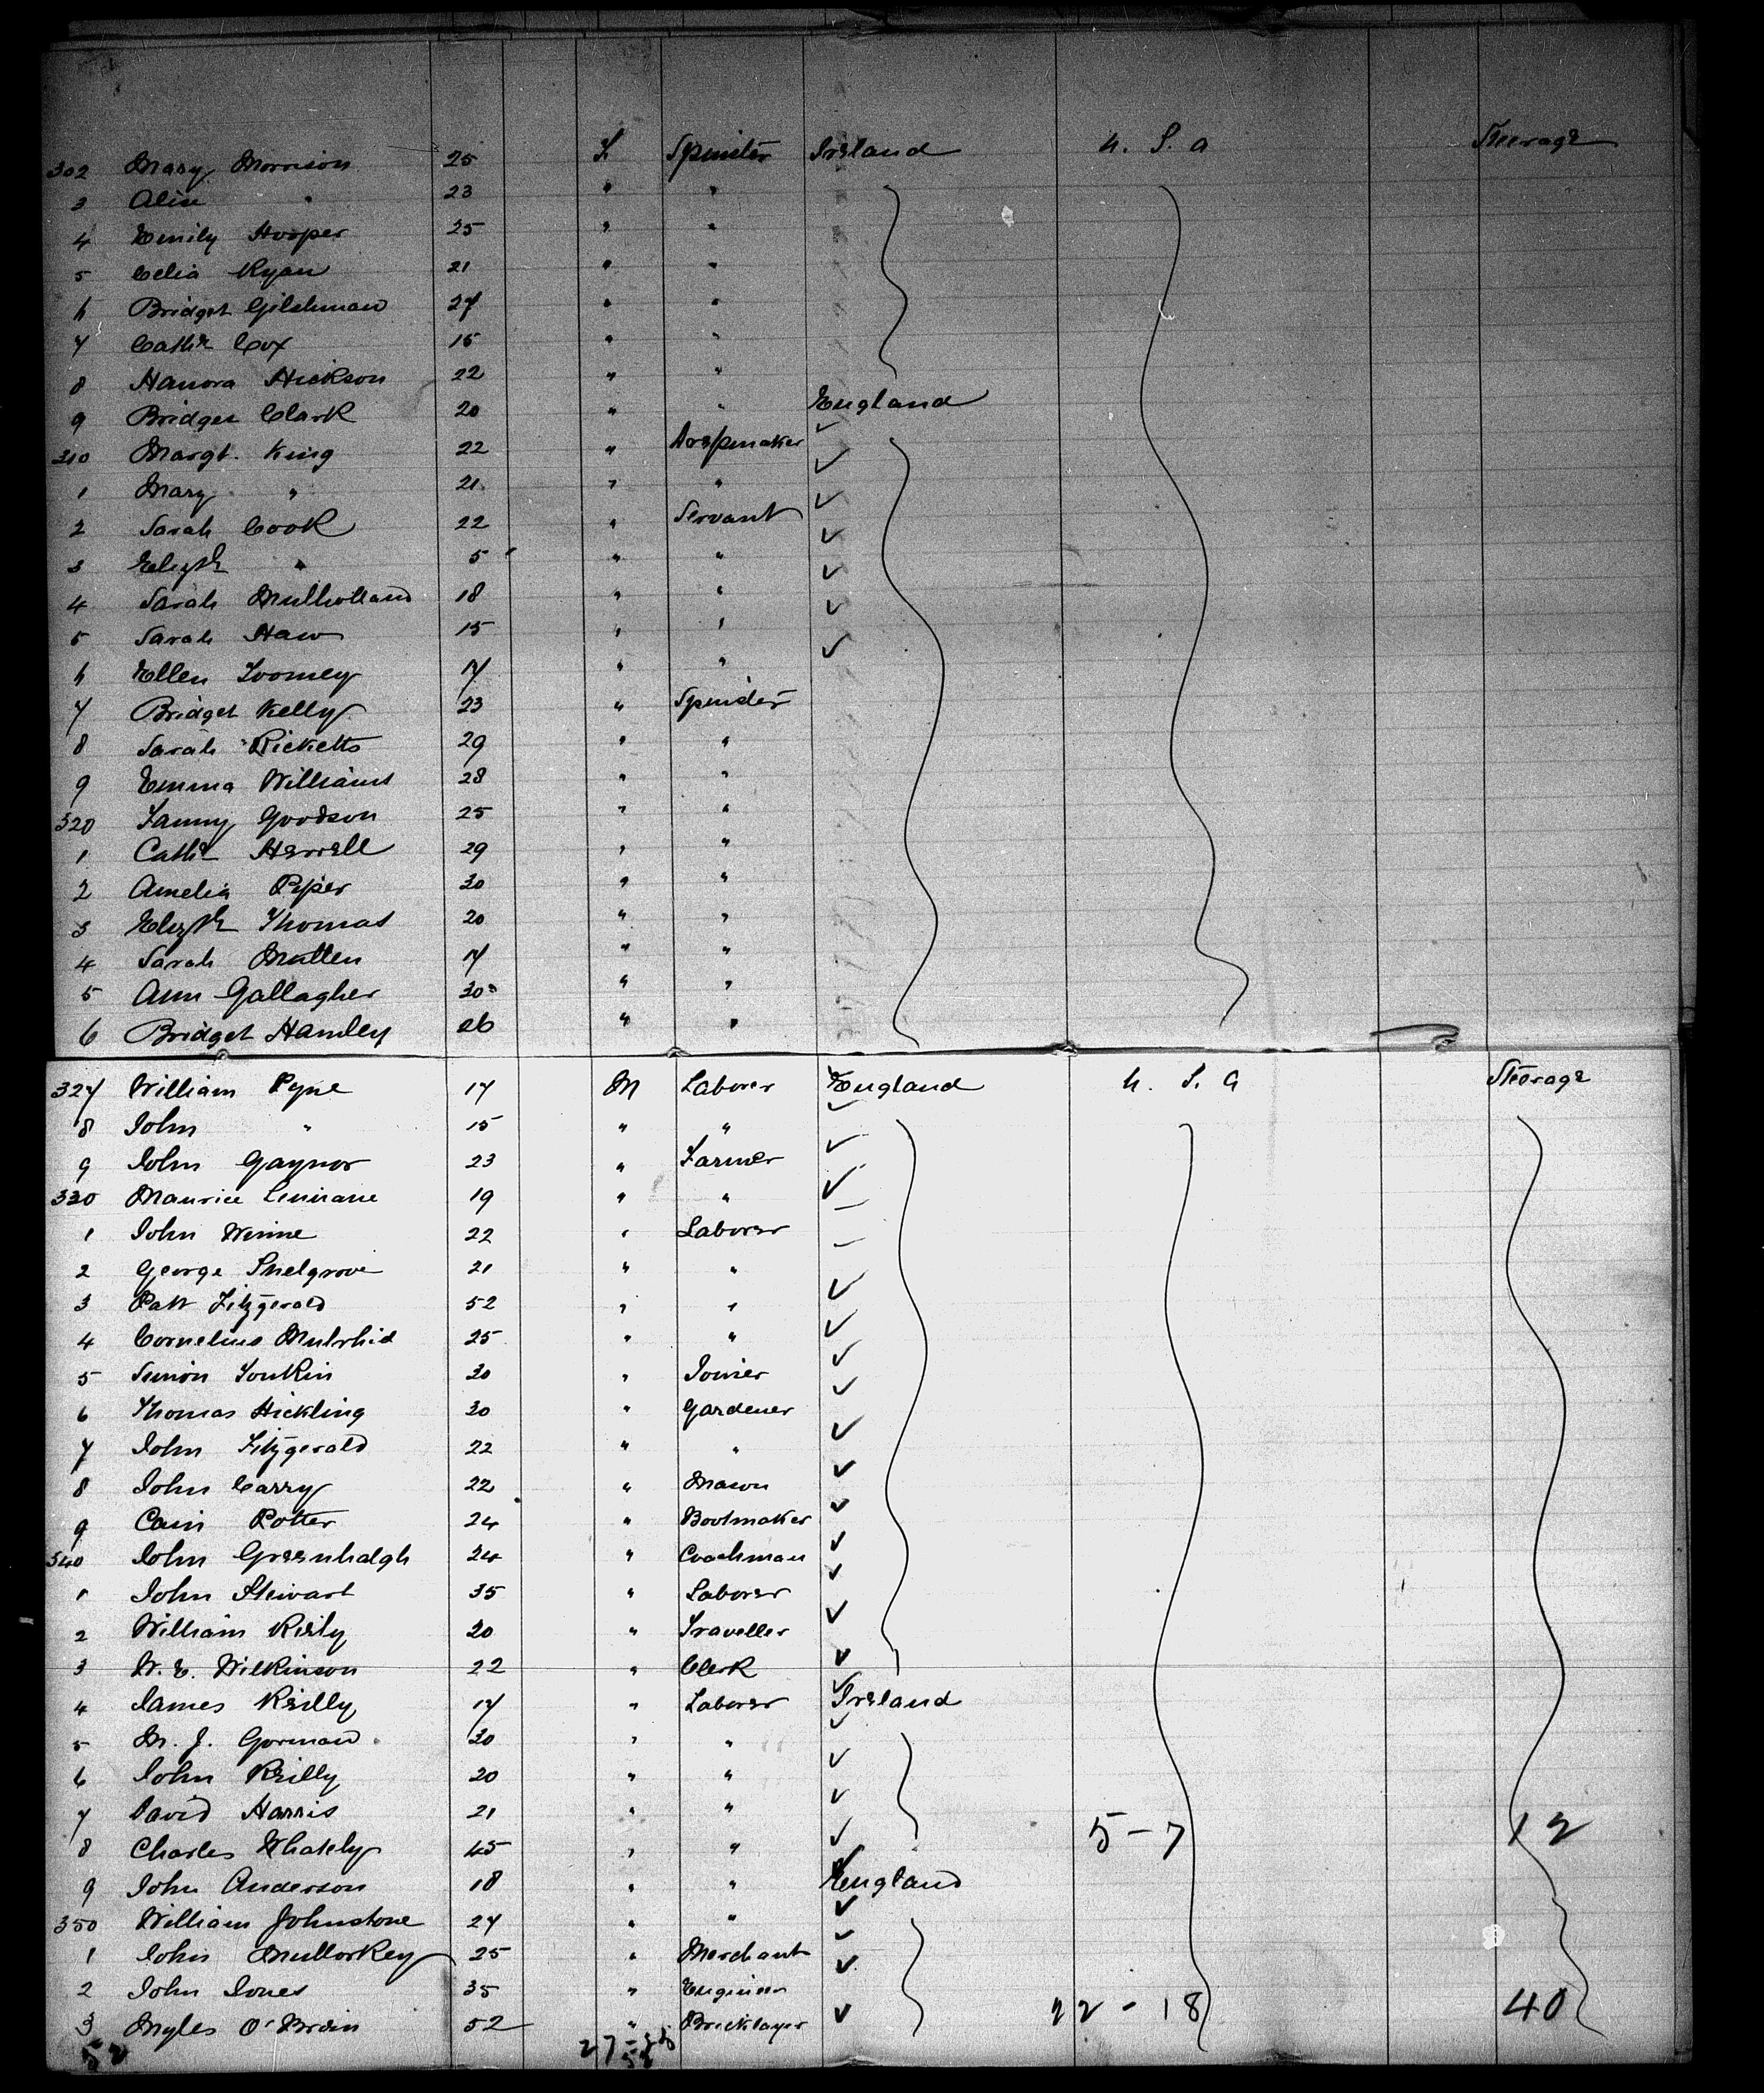 302 Mary Morrison 25 F Spinster Ireland U. S. A Steerage
3 Alice " 23 " "
4 Emily Hooper 25 " "
5 Celia Ryan 21 " "
6 Bridget Gilshman 27 " "
7 Cathe Cox 15 " "
8 Hanora Hickson 22 " "
9 Bridget Clark 20 " " England
310 Margt. King 22 " Dressmaker
1 Mary " 21 " "
2 Sarah Cook 22 " Servant
3 Elizth " 5 " "
4 Sarah Mulholland 18 " "
5 Sarah Haw 15 " "
6 Ellen Toomey 17 " "
7 Bridget Kelly 23 " Spinster
8 Sarah Ricketts 29 " "
9 Emma Williams 28 " "
320 Fanny Goodson 25 " "
1 Cathe Herrell 29 " "
2 Amelia Piper 30 " "
3 Elizth Thomas 20 " "
4 Sarah Mullen 17 " "
5 Ann Gallagher 30 " "
6 Bridget Hamley 26 " "
327 William Pyne 17 M Laborer England U. S. A Steerage
8 John " 15 " "
9 John Gaynor 23 " Farmer
330 Maurice Linnane 19 " "
1 John Winne 22 " Laborer
2 George Snelgrove 21 " "
3 Patt Fitzgerald 52 " "
4 Cornelius 25 " "
5 Simon Tonkin 30 " Joiner
6 Thomas Hickling 30 " Gardener
7 John Fitzgerald 22 " "
8 John Carry 22 " Mason
9 Cain Potter 24 " Bootmaker
340 John Greenhalgh 24 " Coachman
1 John Stewart 35 " Laborer
2 William Risly 20 " Traveller
3 W. E. Wilkinson 22 " Clerk
4 James Reilly 17 " Laborer Ireland
5 M. J. Gorman 30 " "
6 John Reilly 20 " "
7 David Harris 21 " " 5-7 12
8 Charles Whately 45 " "
9 John Anderson 18 " " England
350 William Johnstone 27 " "
1 John Mullorkey 25 " Merchant
2 John Jones 35 " Engineer
3 Myles O'Brien 52 " Bricklayer 22-18 40
52 27-